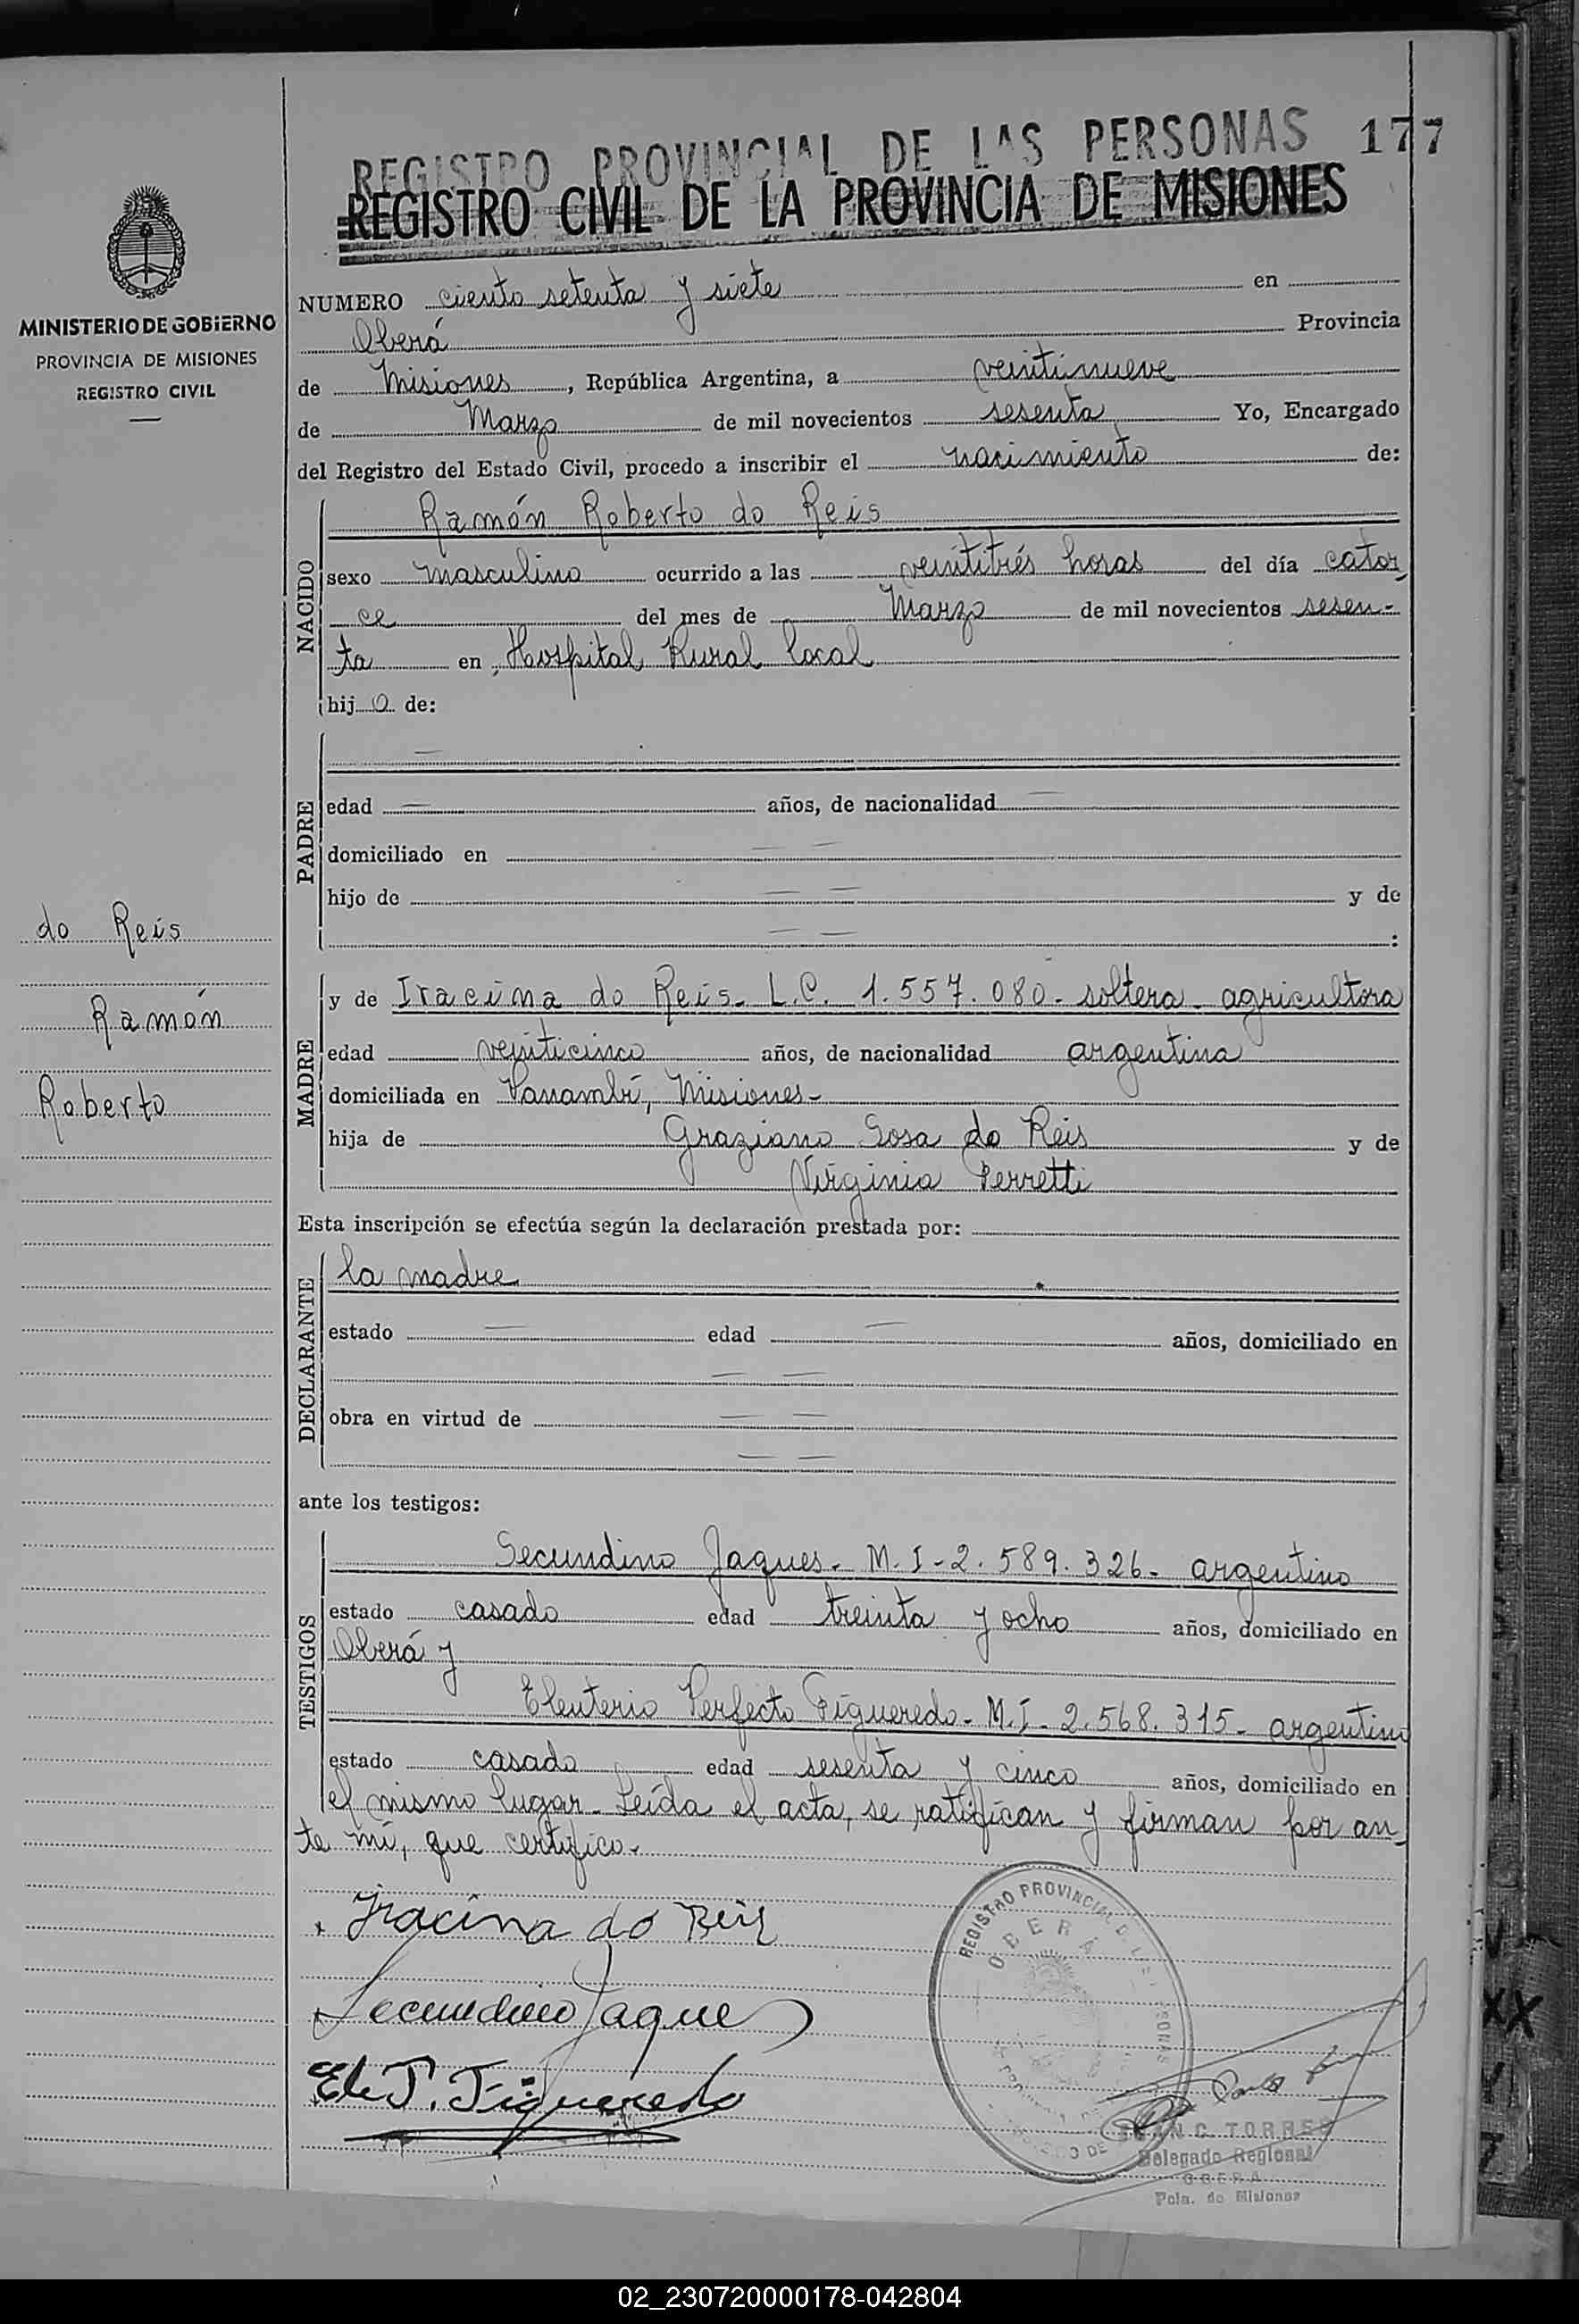 177
REGISTRO PROVINCIAL DE LAS PERSONAS
REGISTRO CIVIL DE LA PROVINCIA DE MISIONES
MINISTERIO DE GOBIERNO
PROVINCIA DE MISIONES
REGISTRO CIVIL
NUMERO ciento setenta y siete en
Oberá Provincia
de Misiones, República Argentina, a veintinueve
de Marzo de mil novecientos sesenta Yo, Encargado
del Registro del Estado Civil, procedo a inscribir el nacimiento de:
NACIDO
Ramón Roberto do Reis
sexo masculino ocurrido a las veintitrés horas del día cator
ce del mes de Marzo de mil novecientos sesen-
ta en Hospital Rural local
hijo de:
PADRE
edad — años, de nacionalidad —
domiciliado en — —
hijo de — — y de
— — :
do Reis
Ramón
Roberto
MADRE
y de Iracina do Reis. L.C. 1.557.080. soltera. agricultora
edad veinticinco años, de nacionalidad argentina
domiciliada en Panambí, Misiones-
hija de Graziano Sosa do Reis y de
Virginia Perretti
Esta inscripción se efectúa según la declaración prestada por:
DECLARANTE
la madre
estado — edad — años, domiciliado en
— —
obra en virtud de — —
— —
ante los testigos:
TESTIGOS
Secundino Jaques. M.I-2.589.326- argentino
estado casado edad treinta y ocho años, domiciliado en
Oberá y
Eleuterio Perfecto Figueredo- M.I- 2.568.315- argentino
estado casado edad sesenta y cinco años, domiciliado en
el mismo lugar. Leída el acta, se ratifican y firman por an-
te mí, que certifico.
Iracina do Reis
Secundino Jaque
El. P. Figueredo
REGISTRO PROVINCIAL
OBERÁ
JUAN C. TORRES
Delegado Regional
OBERA
Pcia. de Misiones
02_230720000178-042804